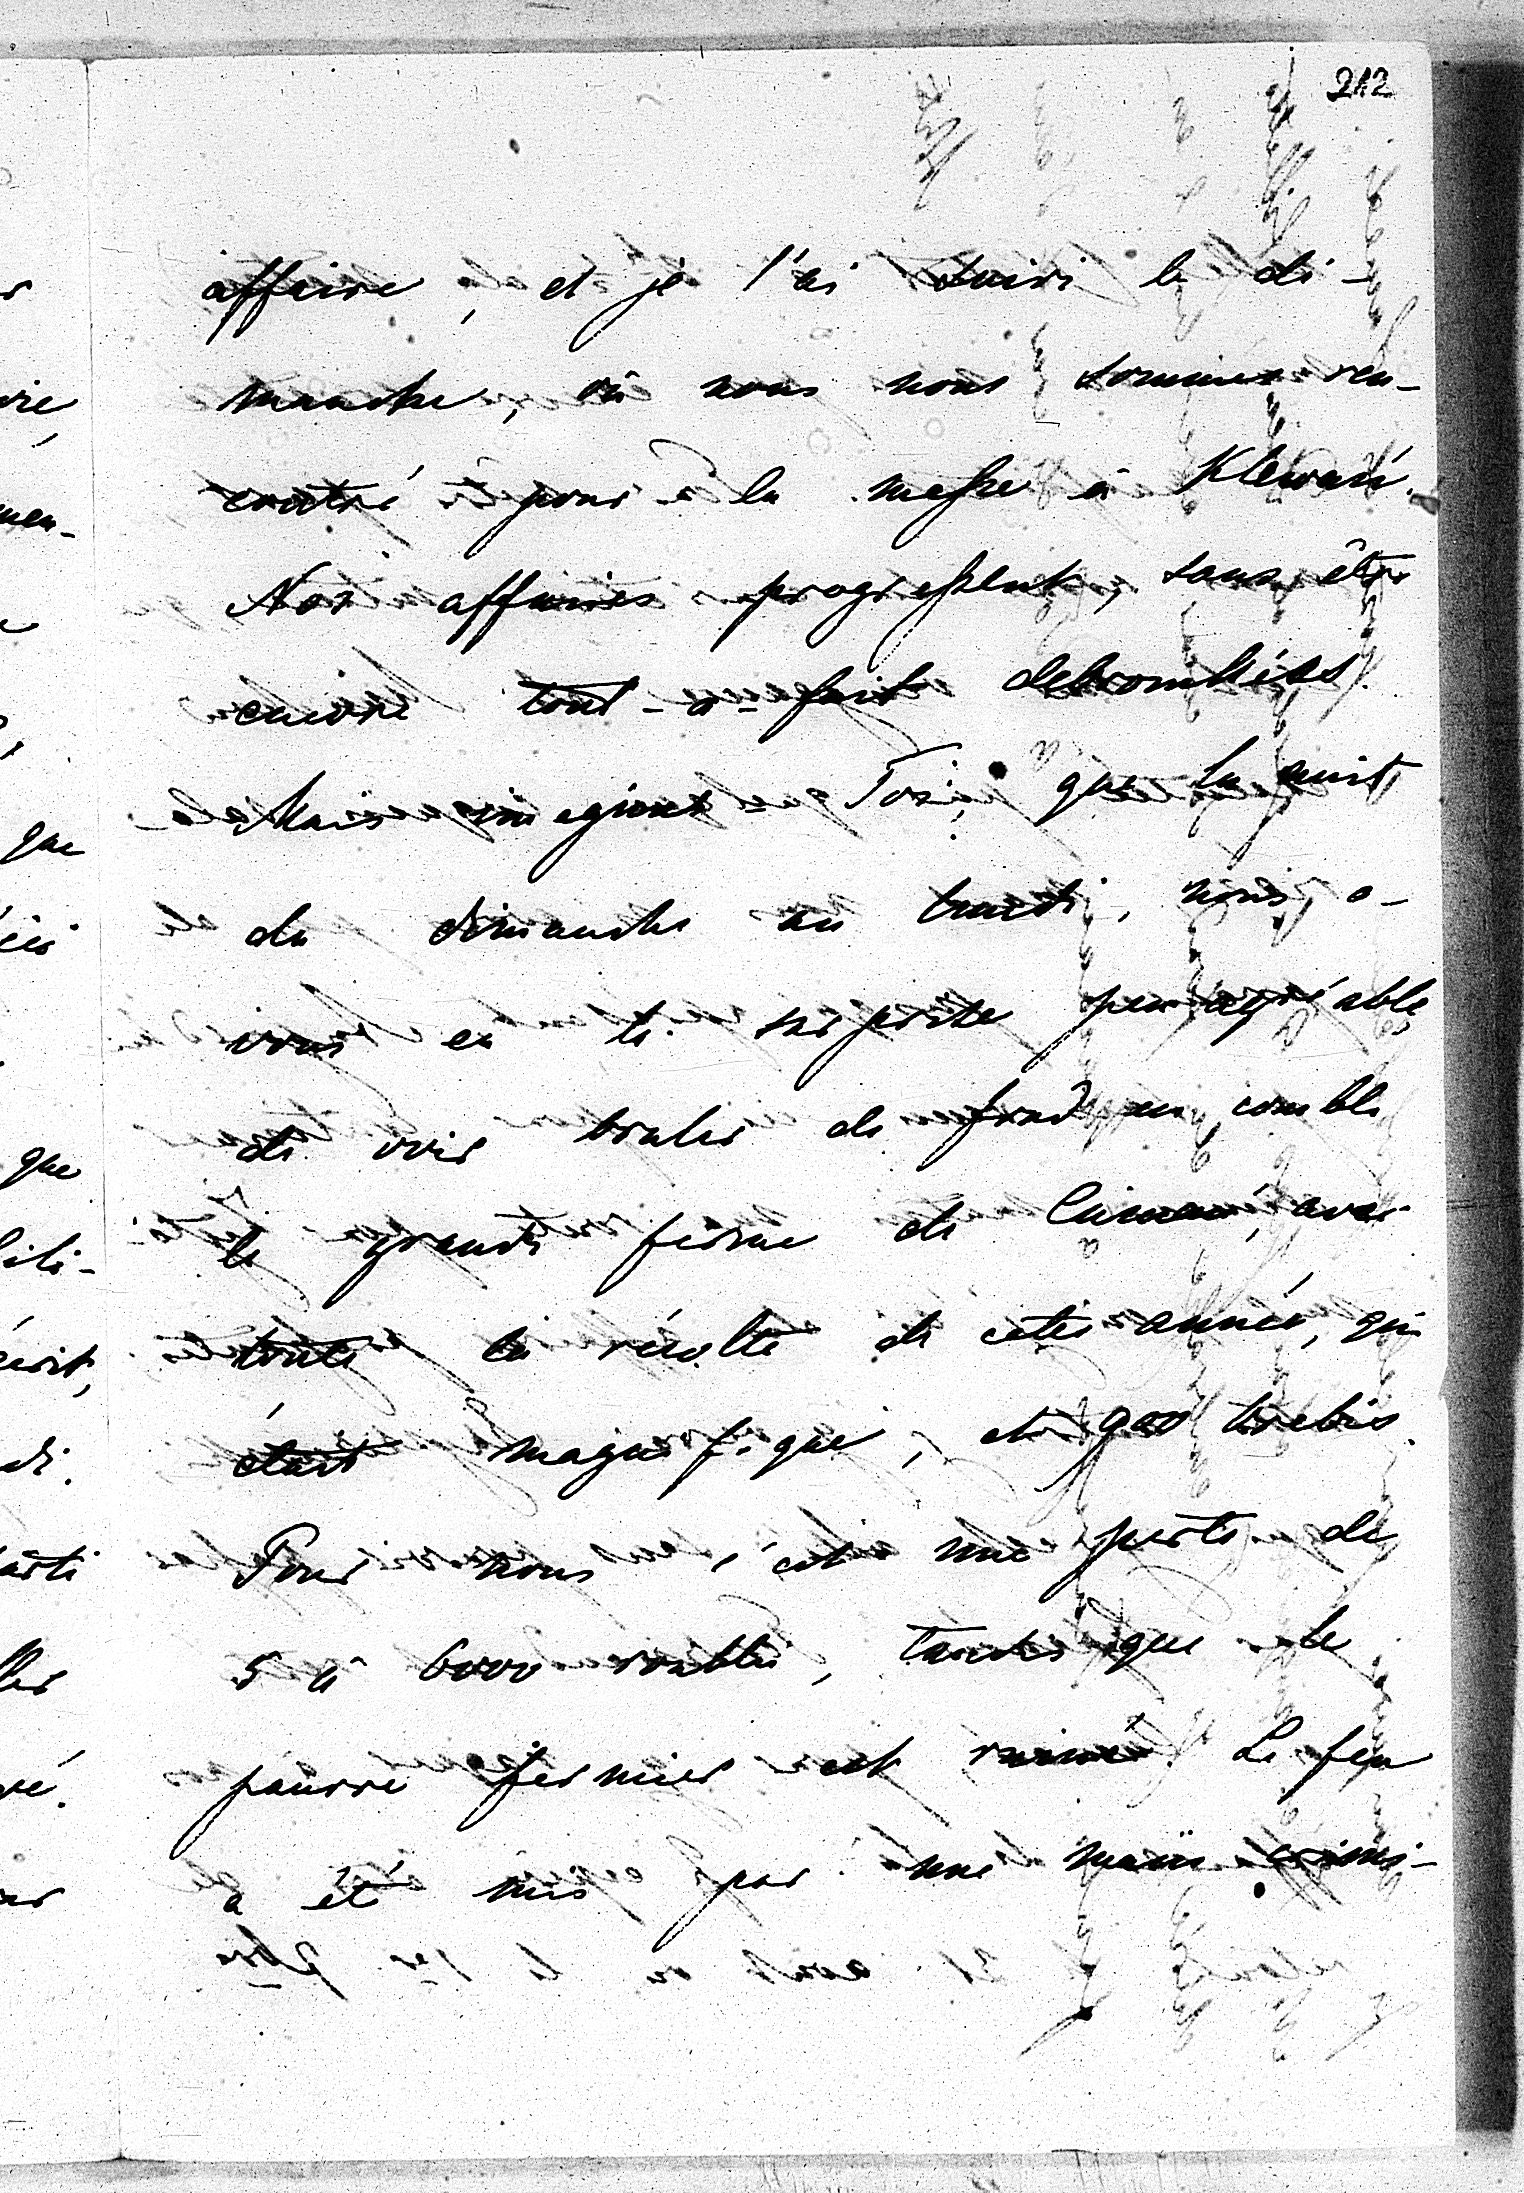 212
affaire, et je l'ai suivi le di-
manche, où nous nous sommes ren-
contré pour à la messe à Klewań.
Nos affaires progressent, sans être
encore tout-a-fait debrouillées.
Mais imagines Toi, que la nuit
du dimanche au lundi, nous a-
vons eu la surprise peu agréable
de voir bruler de fond en comble
la grande ferme de avec
toute la récolte de cette année, qui
était magnifique, et 900 brebis.
Pour nous c'est une perte de
5 à 6000 roubles, tandis que le
pauvre fermier est ruiné. Le feu
a été mis par une main crimi-